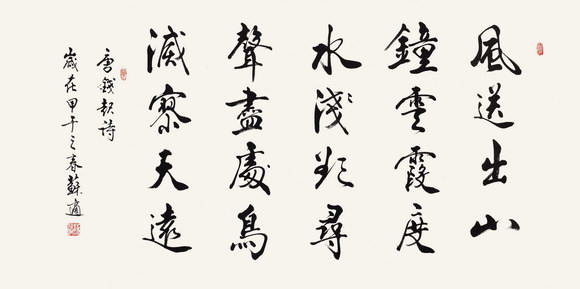 風送出山
鐘雲霞度
水淺欲尋
聲盡處鳥
滅寥天遠
唐錢起詩
歲在甲午之春蘇適